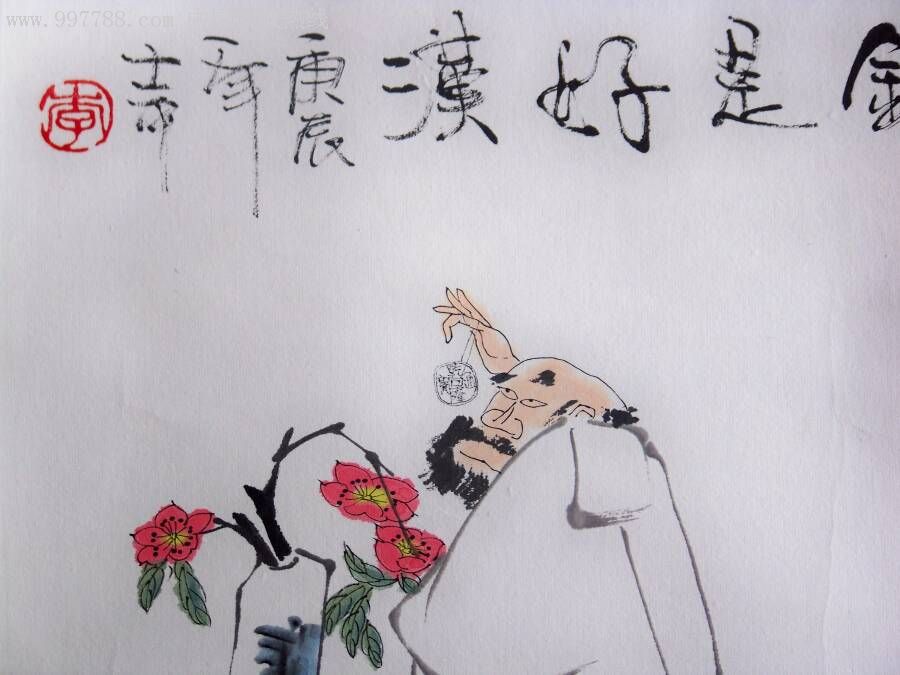 www.997788.com
金是好漢
庚辰
李